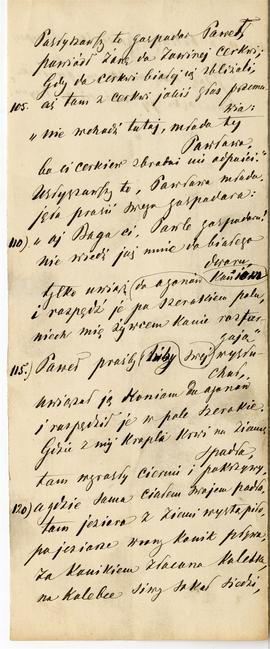 Posłyszawszy to gospodar Paweł,
powiódł żonę do ławinej cerkwi;
Gdy do cerkwi białej się zbliżali,
105. aż tam z cerkwi jakiś głos przema
wia:
„nie wchodź tutaj, młoda ty
Pawłowa,
bo ci cerkiew zbrodni nie odpuści."
Usłyszawszy to, Pawłowa młoda,
jęła prosić swego gospodara:
110.) „oj Boga ci, Pawle gospodaru!
nie wiedź już mnie do białego
dworu,
tylko uwiąż do ogonów koniom
i rozpędź je po szerokiem polu,
niech mię żywcem konie rozszar
pają"
115.) Paweł prośby luby swej wysłu
chał,
uwiązał ją koniom do ogonów,
i rozpędził je w pole szerokie.
Gdzie z niej kropla krwi na ziemię
spadła,
tam wyrosły ciernie i pokrzywy.
120.) a gdzie sama ciałem swojem padła,
tam jezioro z ziemi wystąpiło,
po jeziorze wrony konik pływa,
za konikiem złocona kolebka,
na kolebce siwy sokół siedzi,